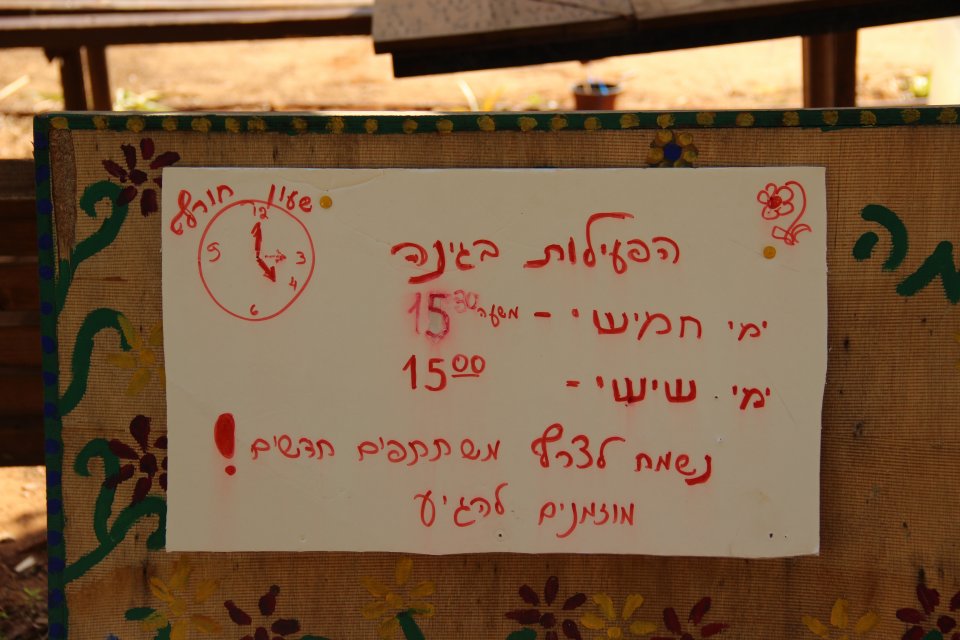 שעון חורף
12
3
4
6
9
הפעילות בגינה
ימי חמישי - משעה 15 30
ימי שישי - 15 00
נשמח לצרף משתתפים חדשים !
מוזמנים להגיע